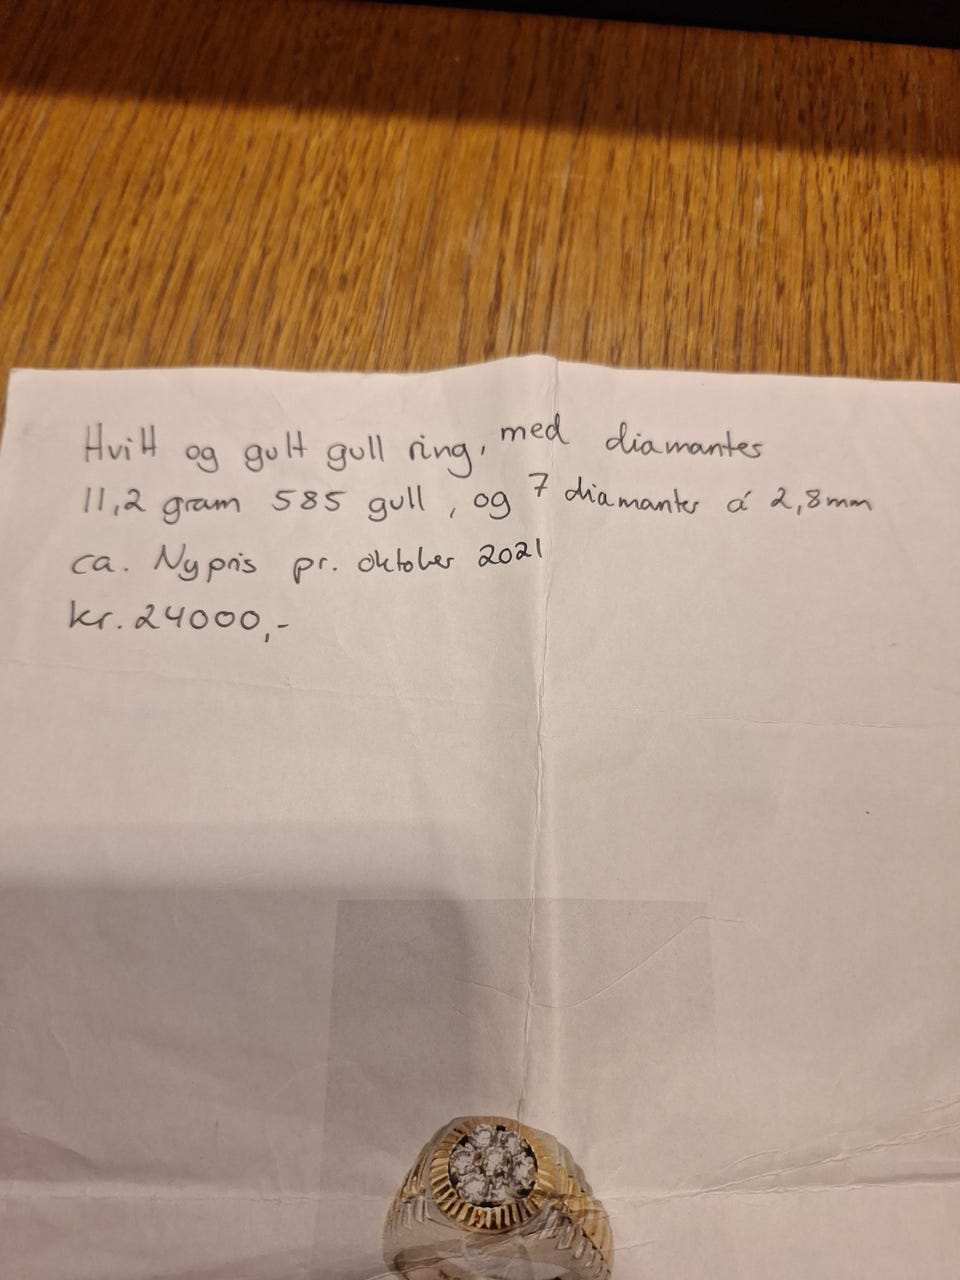 Hvitt og gult gull ring, med diamanter
11,2 gram 585 gull, og 7 diamanter á 2,8mm
ca. Nypris pr. oktober 2021
kr. 24000,-